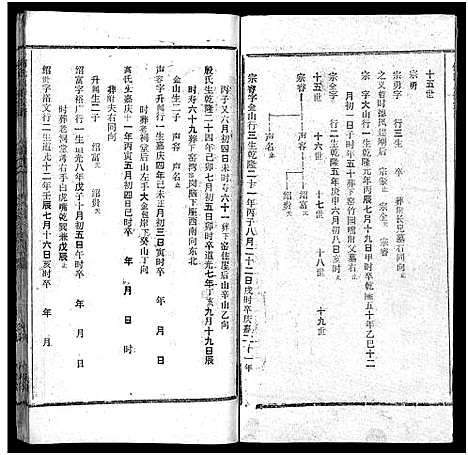 十五世
宗勇
宗勇字 行三生 卒 葬附长兄墓右同向
宗金 止 宗全 止
宗 字大山行一生乾隆元年丙辰七月十九日甲时卒乾隆五十年乙巳十二
月初一日子时年五十葬下窑竹园塆附父墓右
宗全字 行二生乾隆五年庚申六月初八辰时卒
十五世 十六世 十七世 十八世 十九世
宗睿 声容 声名 止
宗睿字金山行三生乾隆二十一年丙子八月二十二日戌时卒庆嘉二十一年
丙子又六月初四日未时寿六十一葬下窑住屋后山辛山乙向
殷氏生乾隆二十四年己卯七月初五日卯时卒道光七年丁亥九月十九日辰
时寿六十九葬下窑湾 下座西南向东北
金山生二子 声容 声名 止
声容字升闻行一生嘉庆四年己未正月初三日寅时卒 年 月 日
时葬老祠堂后山左手大金包岸下癸山丁向
高氏生嘉庆十一年丙寅五月初四日巳时卒 年 月 日
葬附夫右同向
升闻生二子 绍富 天 绍贵 天
绍富字裕广行一生道光八年戊子十月初五日午时卒 年 月 日
时葬老祠堂考右手白虎嘴乾巽兼戊辰 止
绍贵字裕文行二生道光十二年壬辰七月十六日亥时卒 年 月